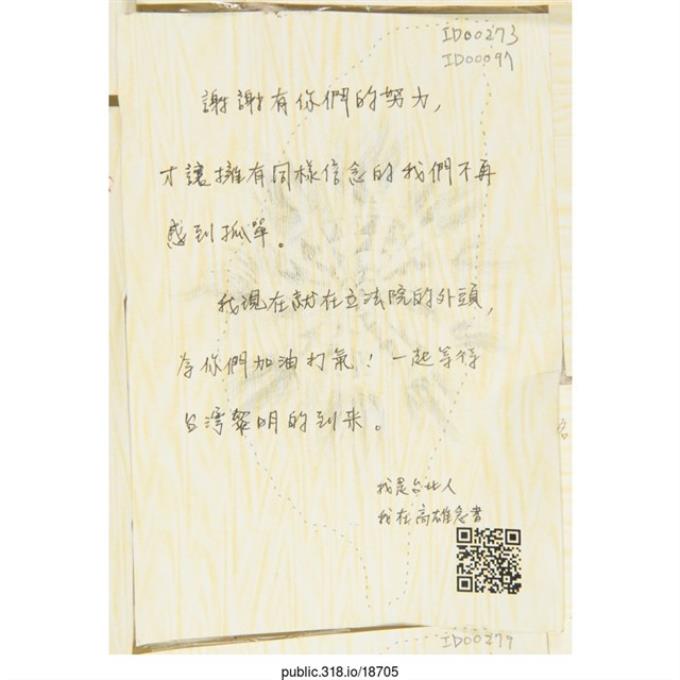 ID00273
ID00097
謝謝有你們的努力，
才讓擁有同樣信念的我們不再
感到孤單。
我現在就在立法院的外頭，
為你們加油打氣！一起等待
台灣黎明的到來。
我是台北人
我在高雄念書
ID00279
public.318.io/18705